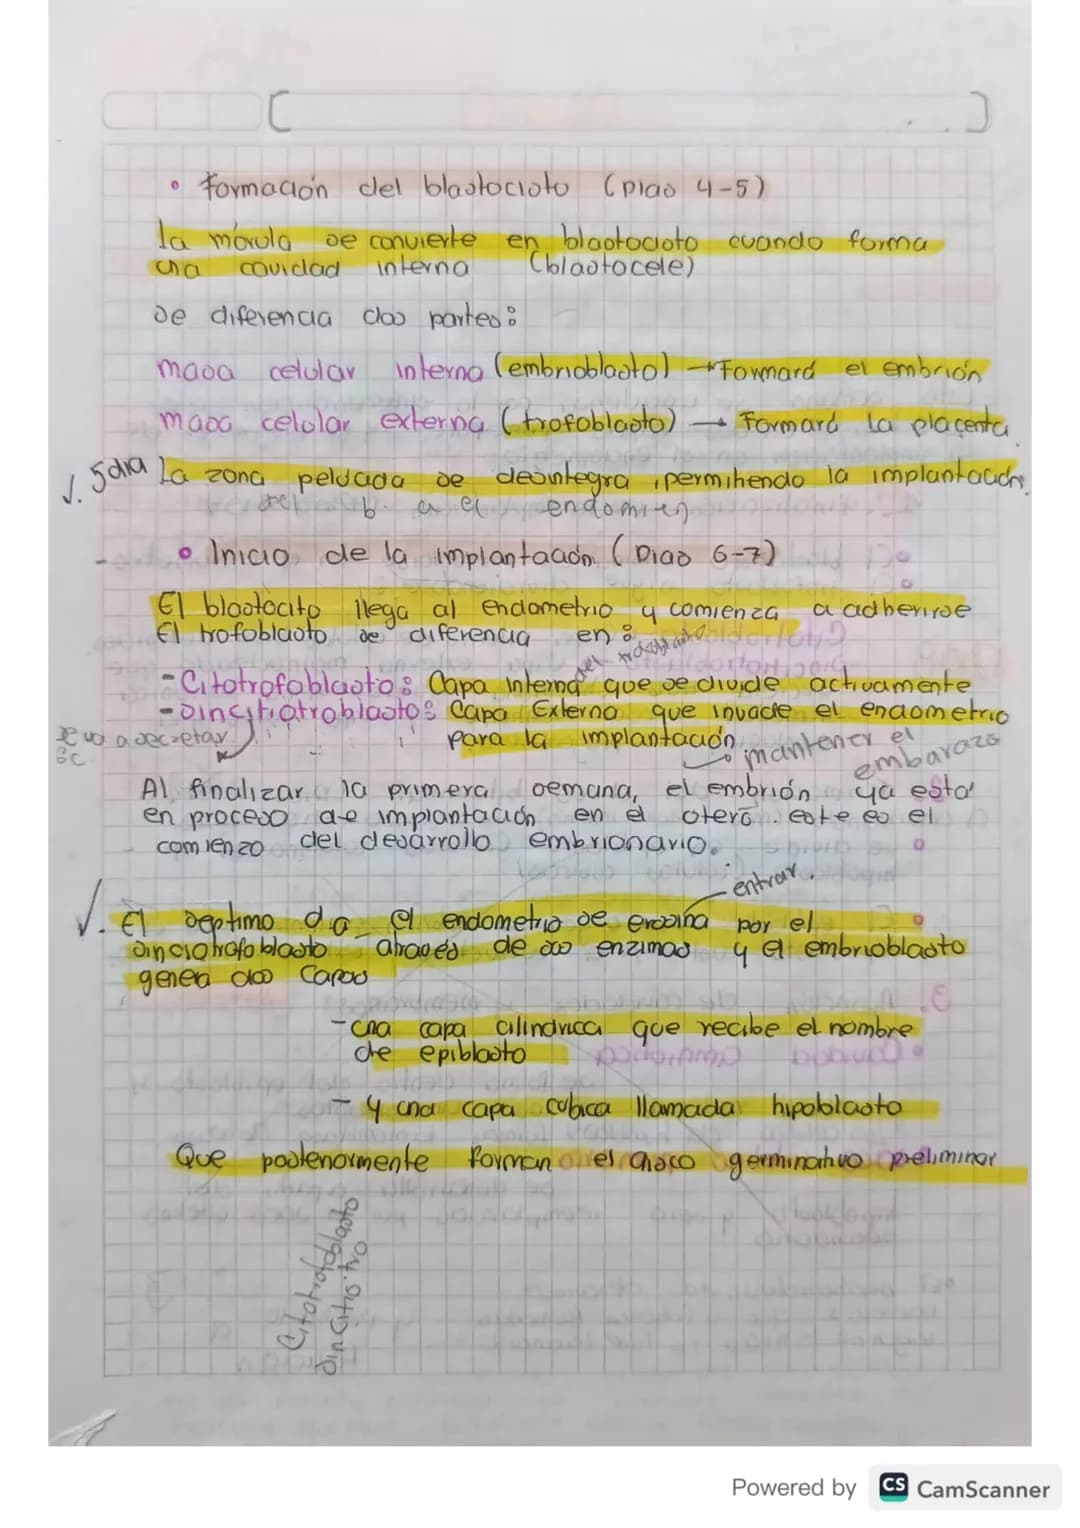 • Formación del blastocisto (Dias 4-5)
la mórula se convierte en blastocisto cuando forma
una cavidad interna (blastocele)
se diferencia dos partes:
masa celular interna (embrioblasto) → Formará el embrión
masa celular externa (trofoblasto) → Formará la placenta
√. 5 dia La zona pelucida se desintegra, permitiendo la implantación
del b. a el endomi
• Inicio de la implantación (Dias 6-7)
El blastocito llega al endometrio y comienza a adherirse
El trofoblasto se diferencia en:
del trofoblasto
- Citotrofoblasto: Capa interna que se divide activamente
- sincitiotroblasto: Capa Externa que invade el endometrio
para la implantación
se va a secretar
→ mantener el
embarazo
Al finalizar la primera semana, el embrión ya está
en proceso de implantación en el utero. este es el
comienzo del desarrollo embrionario.
entrar.
√. El septimo dia el endometrio se erosina por el
sinciotrofoblasto atraves de sus enzimas y el embrioblasto
genera dos Capas
- una capa cilindrica que recibe el nombre
de epiblasto
- y una capa cubica llamada hipoblasto
Que posteriormente forman el disco germinativo preliminar
Citotrofoblasto
Sin Citio.tro
Powered by CS CamScanner